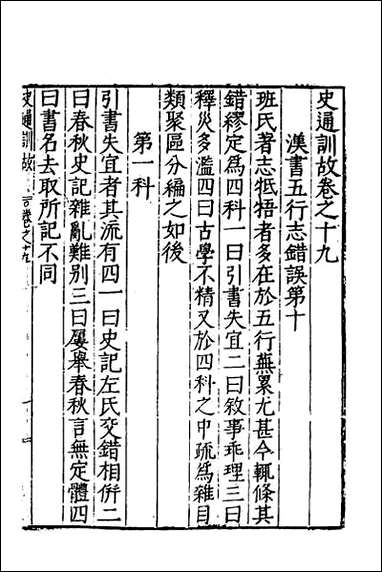 史通訓故卷之十九
漢書五行志錯誤第十
班氏著志牴牾者多在於五行蕪累尤甚今輒條其
錯繆定爲四科一曰引書失宜二曰敘事乖理三曰
釋災多濫四曰古學不精又於四科之中疏爲雜目
類聚區分編之如後
第一科
引書失宜者其流有四一曰史記左氏交錯相倂二
曰春秋史記雜亂難別三曰屢舉春秋言無定體四
曰書名去取所記不同
史通訓故 卷之十九